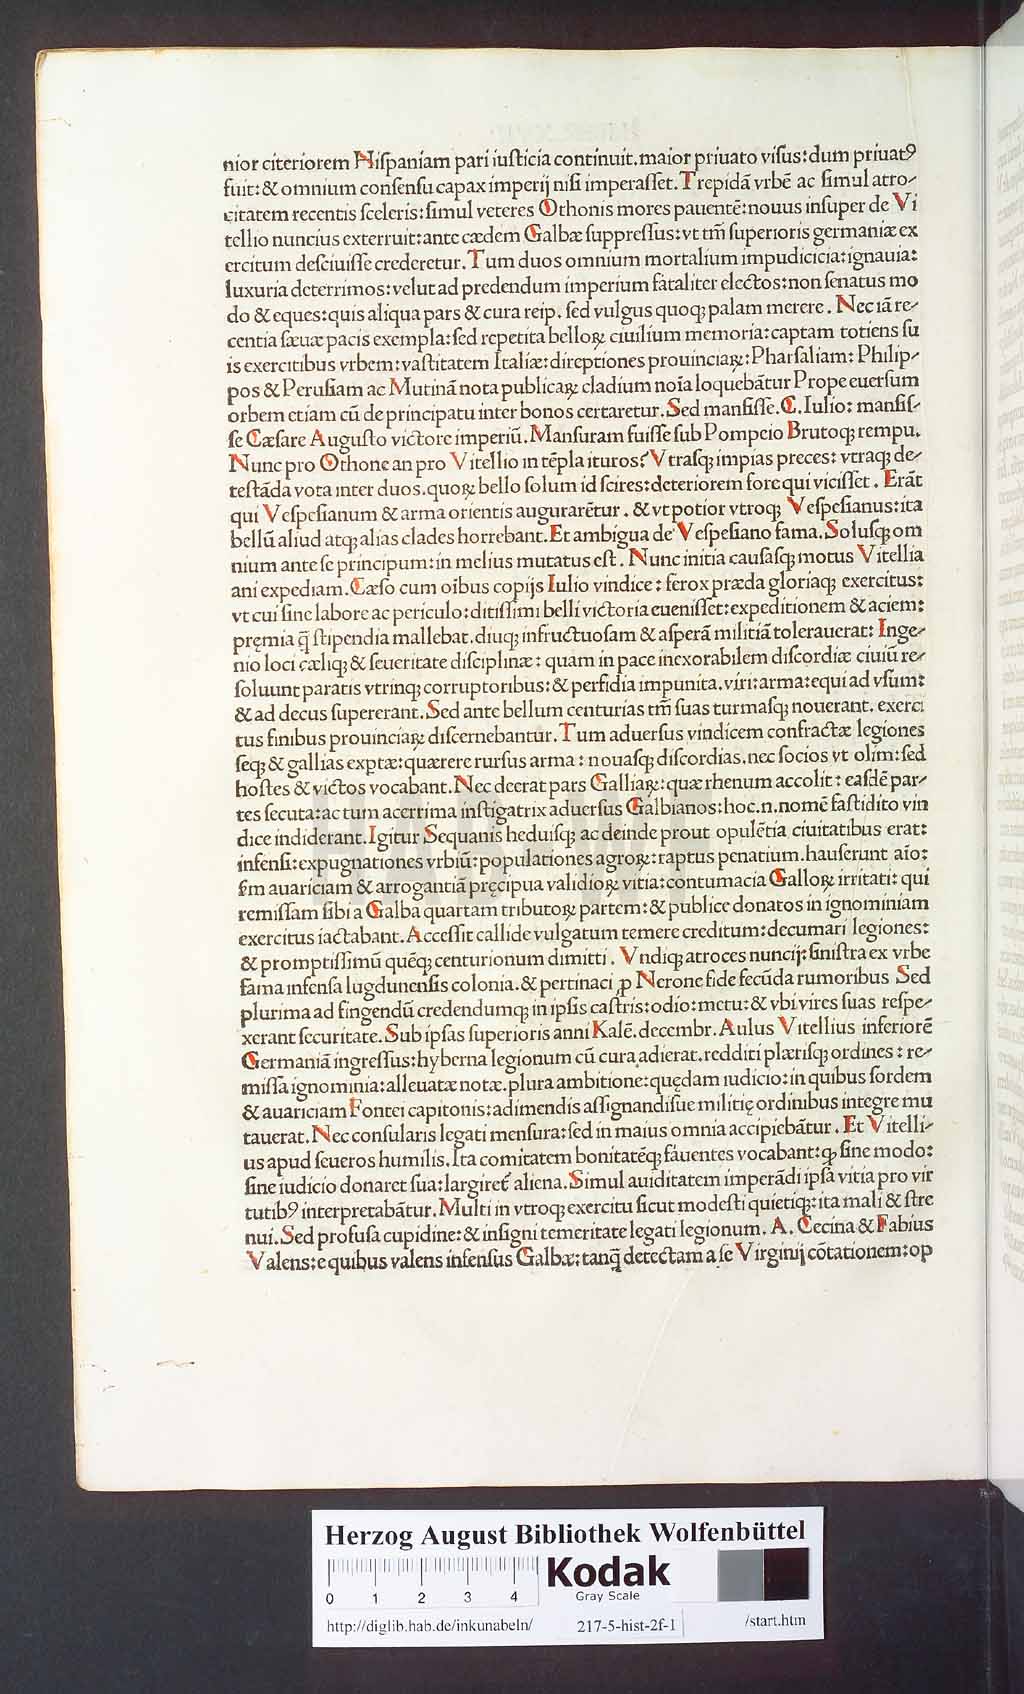 nior citeriorem Hiſpaniam pari iuſticia continuit. maior priuato viſus: dum priuatꝰ
fuit: & omnium conſenſu capax imperij niſi imperaſſet. Trepidã vrbẽ ac ſimul atro-
citatem recentis ſceleris: ſimul veteres Othonis mores pauentẽ: nouus inſuper de Vi
tellio nuncius exterruit: ante cædem Galbæ ſuppreſſus: vt tm̃ ſuperioris germaniæ ex
ercitum deſciuiſſe crederetur. Tum duos omnium mortalium impudicicia: ignauia:
luxuria deterrimos: velut ad predendum imperium fataliter electos: non ſenatus mo
do & eques: quis aliqua pars & cura reip. ſed vulgus quoqꝫ palam merere. Nec iã re-
centia ſæuæ pacis exempla: ſed repetita belloꝝ ciuilium memoria: captam totiens ſu
is exercitibus vrbem: vaſtitatem Italiæ: direptiones prouinciaꝝ: Pharſaliam: Philip-
pos & Peruſiam ac Mutinã nota publicaꝝ cladium noĩa loquebãtur Prope euerſum
orbem etiam cũ de principatu inter bonos certaretur. Sed manſiſſe. C. Iulio: manſiſ-
ſe Cæſare Auguſto victore imperiũ. Manſuram fuiſſe ſub Pompeio Brutoqꝫ rempu.
Nunc pro Othone an pro Vitellio in tẽpla ituros? Vtraſqꝫ impias preces: vtraqꝫ de-
teſtãda vota inter duos. quoꝝ bello ſolum id ſcires: deteriorem fore qui viciſſet. Erãt
qui Veſpeſianum & arma orientis augurarẽtur. & vt potior vtroqꝫ Veſpeſianus: ita
bellũ aliud atqꝫ alias clades horrebant. Et ambigua de Veſpeſiano fama. Soluſqꝫ om
nium ante ſe principum: in melius mutatus eſt. Nunc initia cauſaſqꝫ motus Vitellia
ani expediam. Cæſo cum oibus copijs Iulio vindice: ferox præda gloriaqꝫ exercitus:
vt cui ſine labore ac periculo: ditiſſimi belli victoria eueniſſet: expeditionem & aciem:
pręmia q̃ ſtipendia mallebat. diuqꝫ infructuoſam & aſperã militiã tolerauerat: Inge-
nio loci cæliqꝫ & ſeueritate diſciplinæ: quam in pace inexorabilem diſcordiæ ciuiũ re-
ſoluunt paratis vtrinqꝫ corruptoribus: & perfidia impunita. viri: arma: equi ad vſum:
& ad decus ſupererant. Sed ante bellum centurias tm̃ ſuas turmaſqꝫ nouerant. exerci
tus finibus prouinciaꝝ diſcernebantur. Tum aduerſus vindicem confractæ legiones
ſeqꝫ & gallias exptæ: quærere rurſus arma: nouaſqꝫ diſcordias. nec ſocios vt olim: ſed
hoſtes & victos vocabant. Nec deerat pars Galliaꝝ: quæ rhenum accolit: eaſdẽ par-
tes ſecuta: ac tum acerrima inſtigatrix aduerſus Galbianos: hoc. n. nomẽ faſtidito vin
dice indiderant. Igitur Sequanis heduiſqꝫ ac deinde prout opulẽtia ciuitatibus erat:
infenſi: expugnationes vrbiũ: populationes agroꝝ: raptus penatium. hauſerunt aĩo:
ſm auariciam & arrogantiã pręcipua validioꝝ vitia: contumacia Galloꝝ irritati: qui
remiſſam ſibi a Galba quartam tributoꝝ partem: & publice donatos in ignominiam
exercitus iactabant. Acceſſit callide vulgatum temere creditum: decumari legiones:
& promptiſſimũ quẽqꝫ centurionum dimitti. Vndiqꝫ atroces nuncij: ſiniſtra ex vrbe
fama infenſa lugdunenſis colonia. & pertinaci ꝓ Nerone fide fecũda rumoribus Sed
plurima ad fingendũ credendumqꝫ in ipſis caſtris: odio: metu: & vbi vires ſuas reſpe-
xerant ſecuritate. Sub ipſas ſuperioris anni Kalẽ. decembr. Aulus Vitellius inferiorẽ
Germaniã ingreſſus: hyberna legionum cũ cura adierat. redditi plæriſqꝫ ordines: re-
miſſa ignominia: alleuatæ notæ. plura ambitione: quędam iudicio: in quibus ſordem
& auariciam Fontei capitonis: adimendis aſſignandiſue militię ordinibus integre mu
tauerat. Nec conſularis legati menſura: ſed in maius omnia accipiebãtur. Et Vitelli-
us apud ſeueros humilis. Ita comitatem bonitatẽqꝫ fauentes vocabant: ꝙ ſine modo:
ſine iudicio donaret ſua: largiret᷑ aliena. Simul auiditatem imperãdi ipſa vitia pro vir
tutibꝰ interpretabãtur. Multi in vtroqꝫ exercitu ſicut modeſti quietiqꝫ: ita mali & ſtre
nui. Sed profuſa cupidine: & inſigni temeritate legati legionum. A. Cecina & Fabius
Valens: e quibus valens infenſus Galbæ: tanq̃ detectam a ſe Virginij cõtationem: op
HAB WF
Herzog August Bibliothek Wolfenbüttel
0 1 2 3 4
Kodak
Gray Scale
http://diglib.hab.de/inkunabeln/ 217-5-hist-2f-1 /start.htm